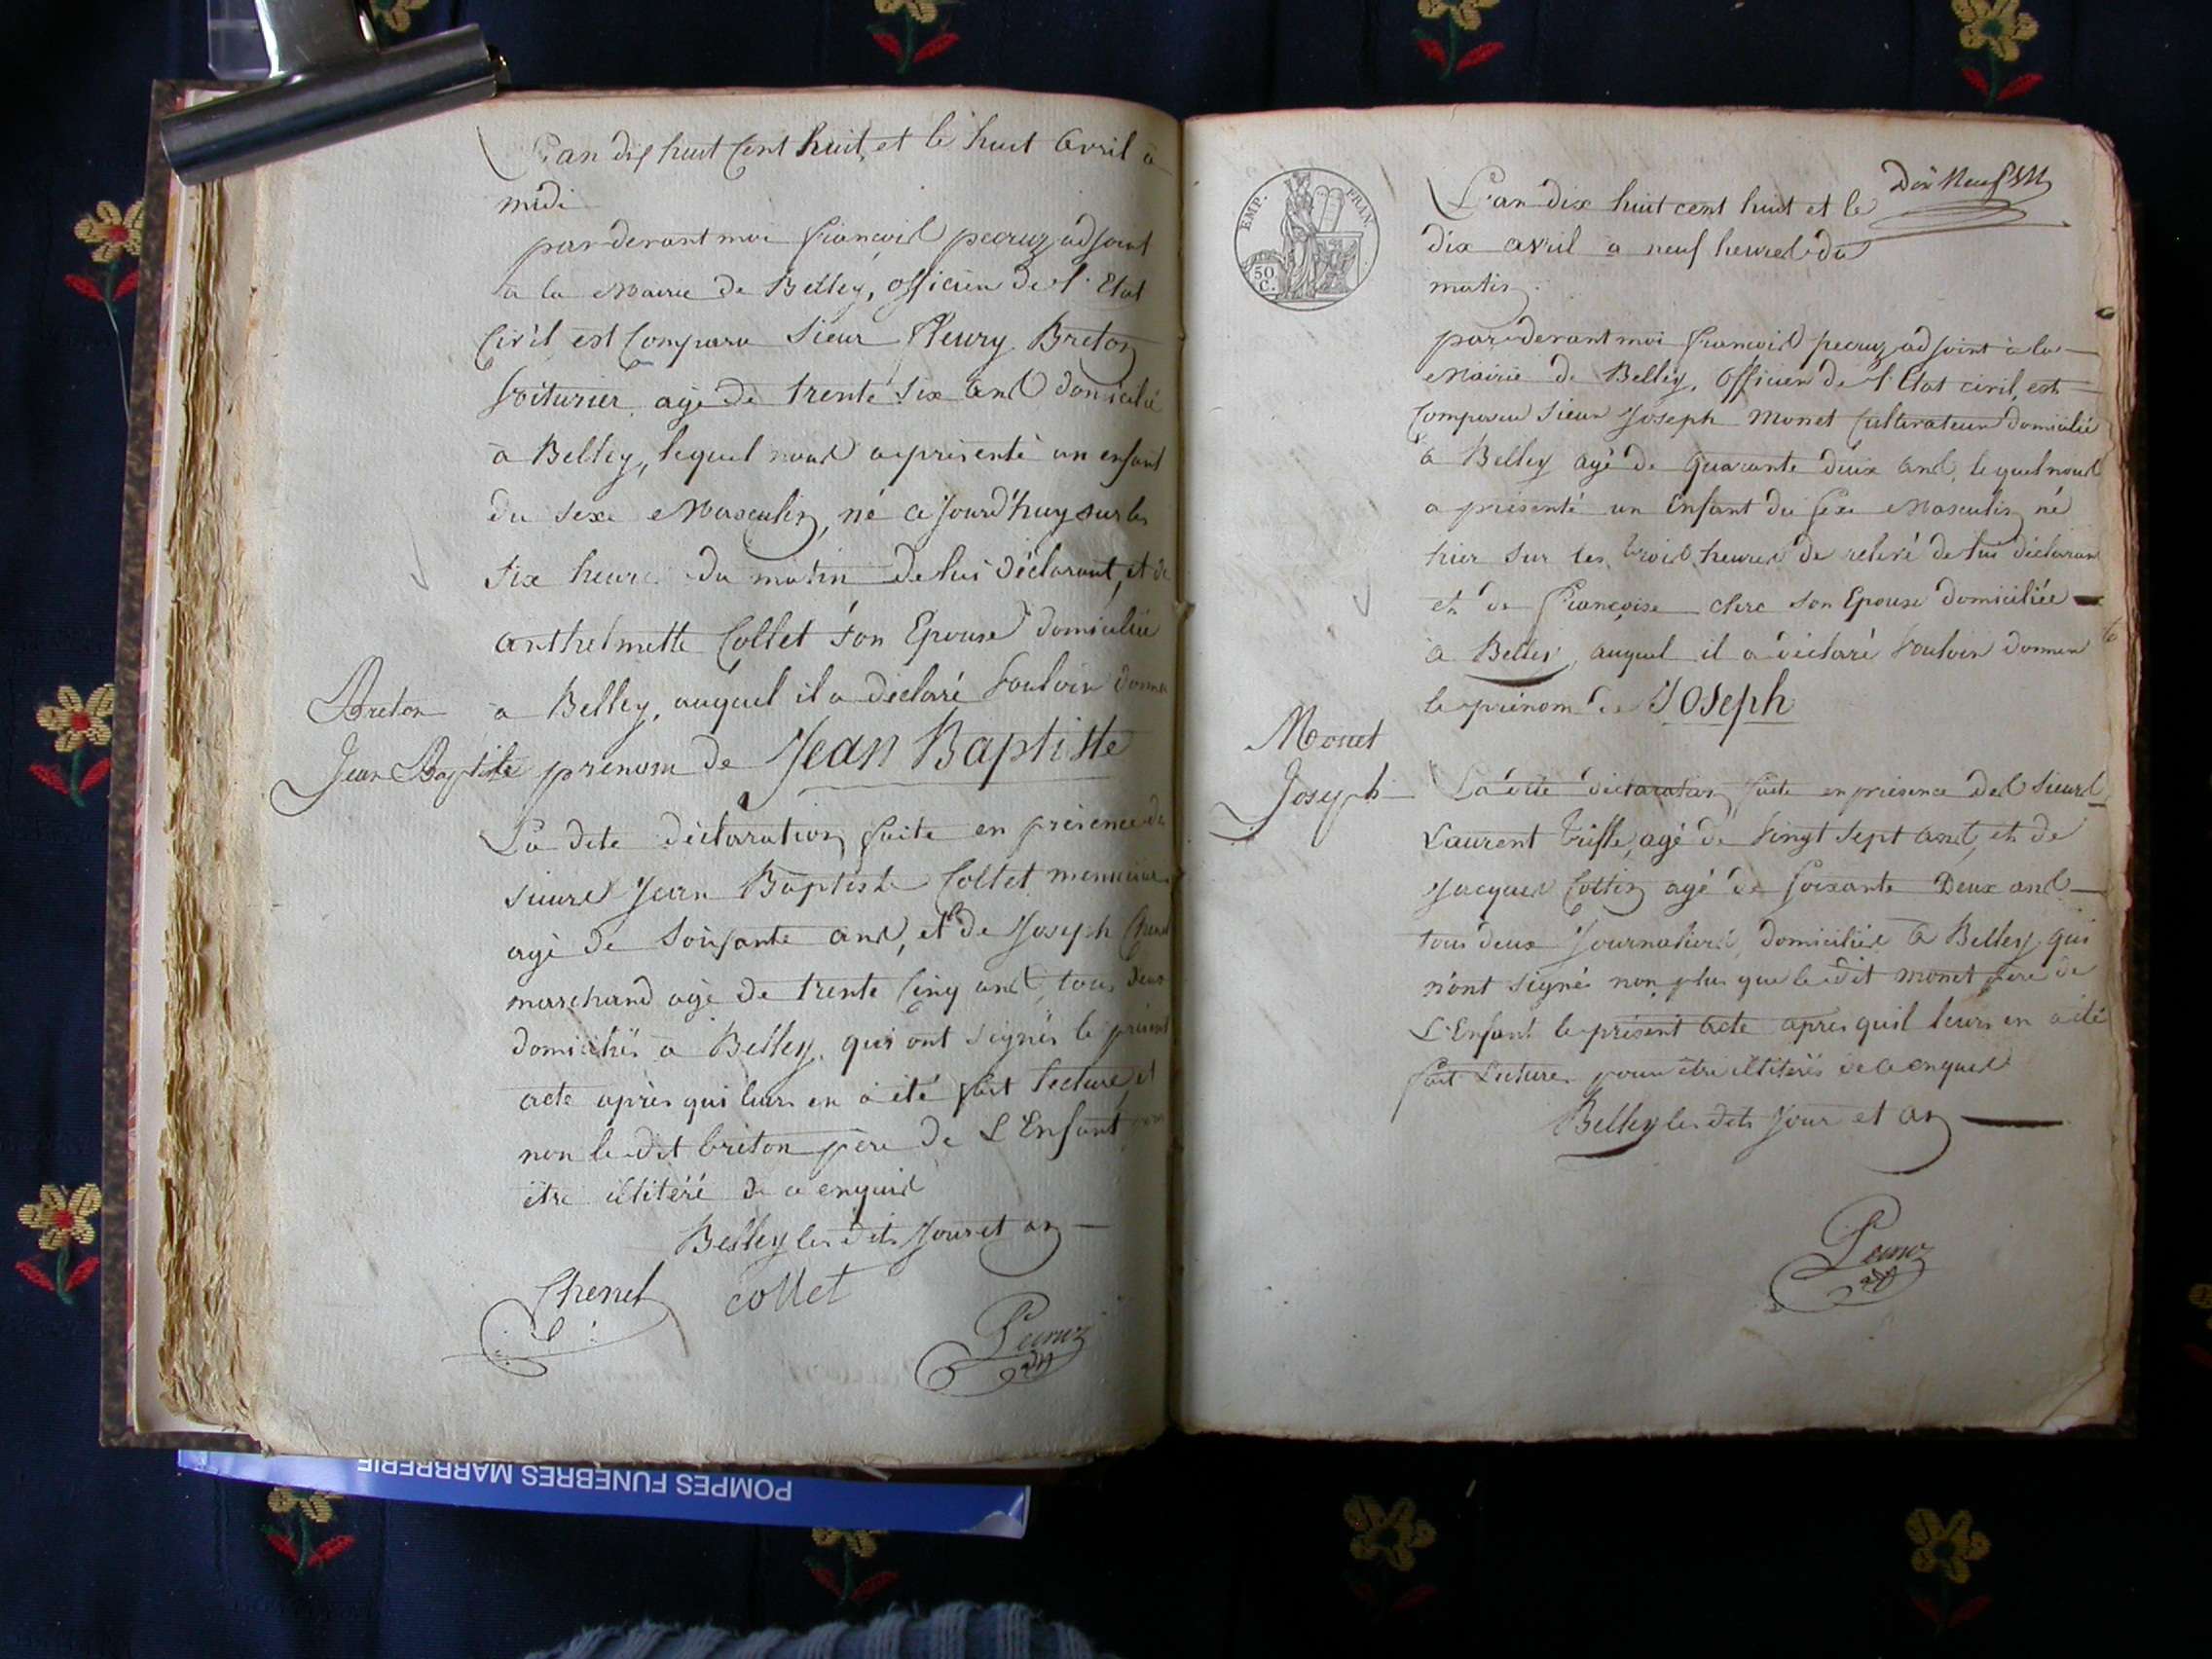 L'an dix huit Cent huit, et le huit avril à
midi
par devant moi françois pecruz adjoint
a la Mairie de Belley, officier de l'Etat
Civil est Comparu Sieur fleury Breton
Voiturier agé de trente six ans domicilié
à Belley, lequel nous a présenté un enfant
du sexe Masculin, né cejourd'huy sur les
six heures du matin de lui déclarant, et de
anthelmette Collet son Epouse domiciliée
a Belley, auquel il a déclaré Vouloir donner
Breton
Jean Baptiste
prenom de Jean Baptiste
La dite déclaration faite en présence de
sieurs Jean Baptiste Collet menuisier
agé de Soixante ans, et de Joseph Chenet
marchand agé de trente Cinq ans, tous deux
domiciliés à Belley, qui ont signés le présent
acte après qui leurs en a été fait lecture et
non le dit breton père de L'Enfant pour
être illitéré de ce enquis
Belley les dits Jour et an
Chenet collet
Pecruz
adj
EMP. FRAN.
50
C.
Dix Neuf
L'an dix huit cent huit et le
dix avril a neuf heures du
matin
par devant moi francois pecruz adjoint à la
Mairie de Belley, Officier de l'Etat civil, est
Comparu Sieur Joseph Monet Cultivateur domicilié
à Belley agé de quarante deux ans, lequel nous
a présenté un Enfant du sexe Masculin né
hier sur les trois heures de relevé de lui déclarant
et de Françoise clerc son Epouse domiciliée
à Belley, auquel il a déclaré Vouloir donner
le prénom de Joseph
Monet
Joseph
La dite déclaration faite en présence des Sieurs
Laurent agé de Vingt Sept ans, et de
Jacques Cottin agé de Soixante Deux ans
tous deux Journaliers, domiciliés à Belley qui
n'ont signés non plus que le dit monet père de
L'Enfant le présent acte apres quil leurs en a été
fait Lecture pour être illitérés de ce enquis
Belley les dits Jour et an
Pecruz
adj
POMPES FUNEBRES MARBRERIE